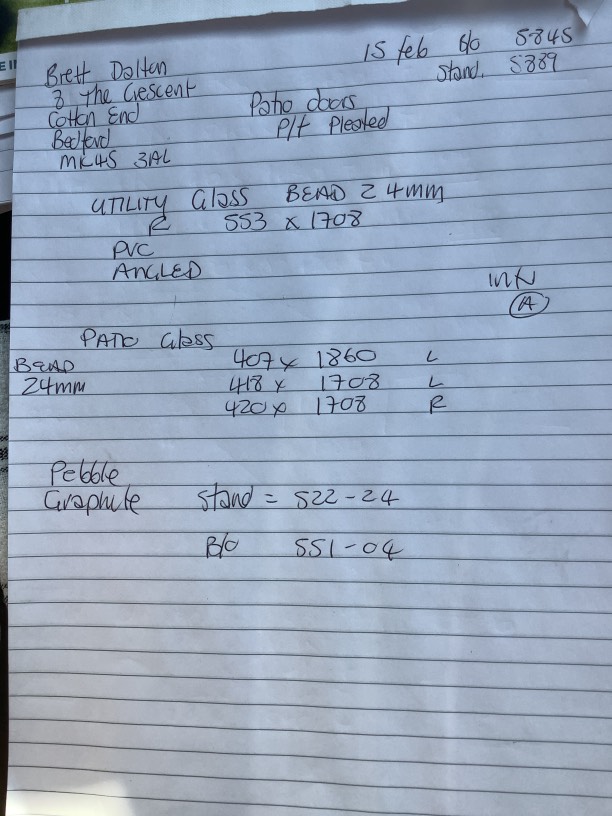 15 feb B/O 5845
Stand. 5889
Brett Dalton
8 The Crescent
Cotton End
Bedford
MK45 3AL
Patio doors
P/f Pleated
UTILITY Glass BEAD 24mm
R 553 x 1708
PVC
ANGLED
A
PATIO Glass
BEAD
24mm
407 x 1860 L
418 x 1708 L
420 x 1708 R
Pebble
Graphite Stand = 522-24
B/O 551-04